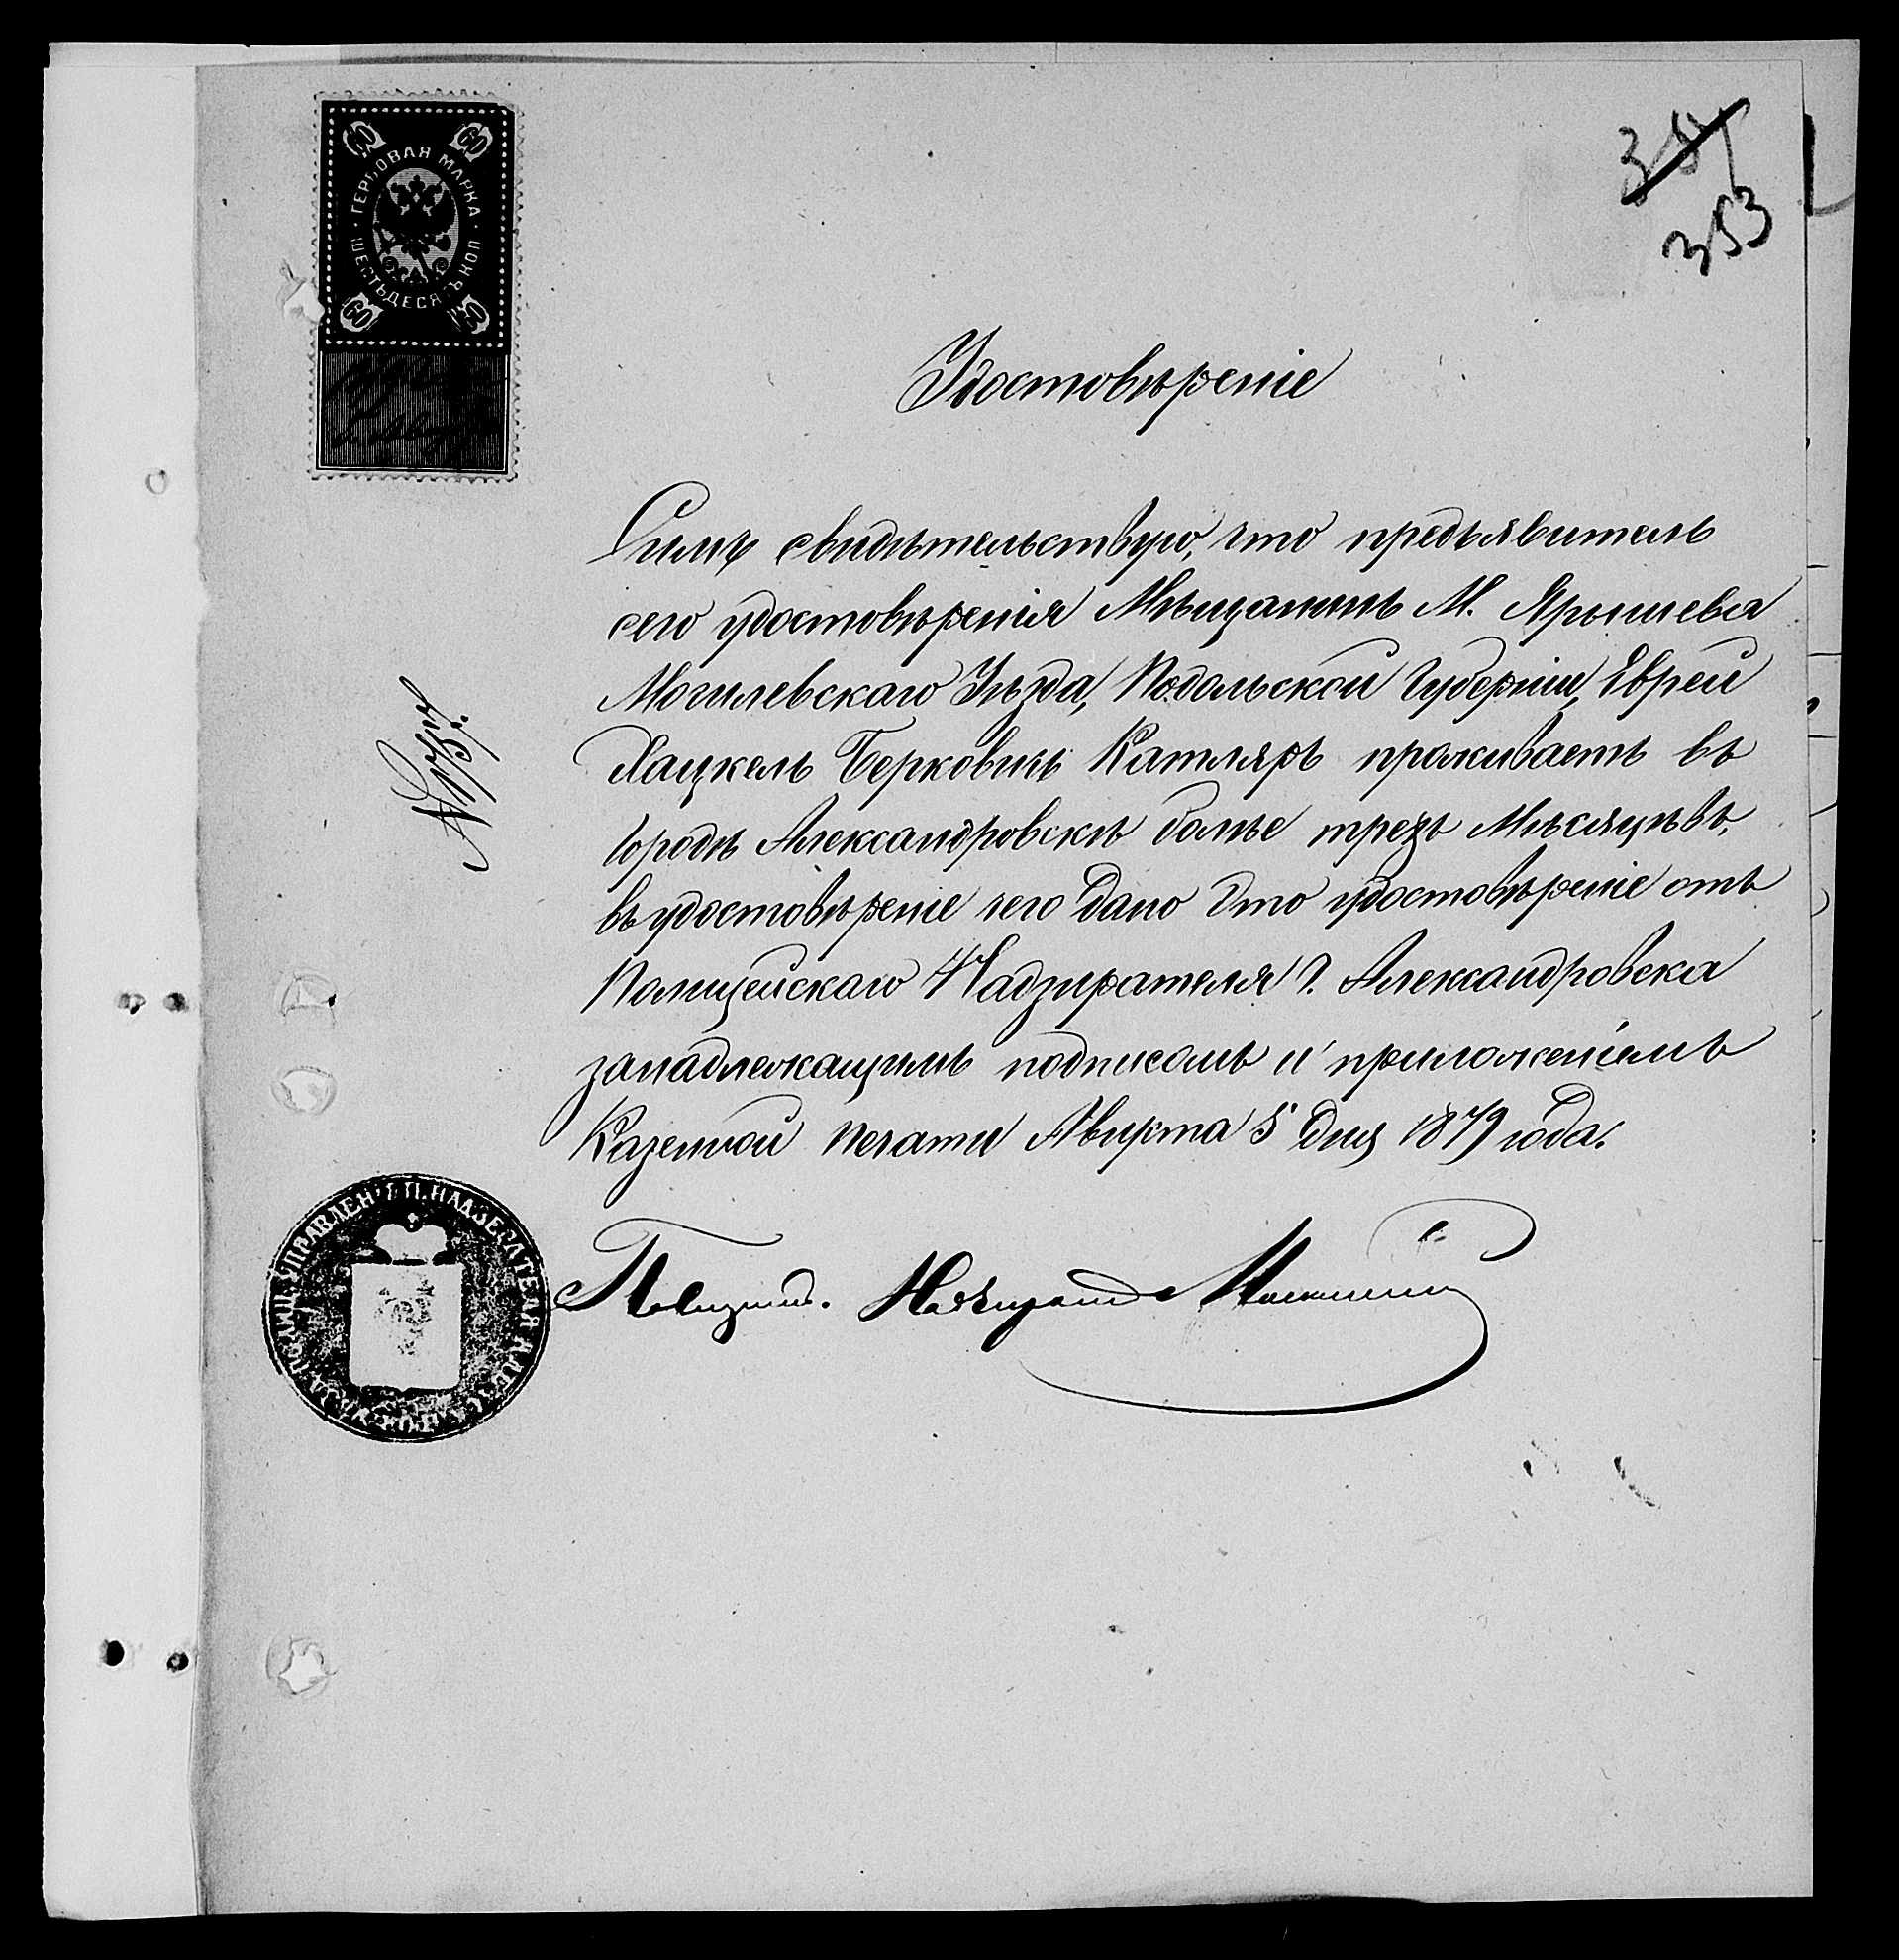 ГЕРБОВАЯ МАРКА
ШЕСТЬДЕСЯТЪ КОП
60 60
60 60
353
Удостовѣреніе
Симъ свидѣтельствую, что предъявитель
сего удостовѣренія Мѣщанинъ М. Ярышева
Могилевскаго Уѣзда, Подольской Губерніи, Еврей
Хацкель Берковичъ Катляръ проживаетъ въ
городѣ Александровскѣ болѣе трехъ Мѣсяцѣвъ,
въ удостовѣреніе чего дано это удостовѣреніе отъ
Полицейскаго Надзирателя г. Александровска
занадлежащимъ подписомъ и приложеніемъ
Казенной печати Августа 5 дня 1879 года.
Полицейск. Надзират
УПРАВЛЕН П. НАДЗЕРАТЕЛЯ